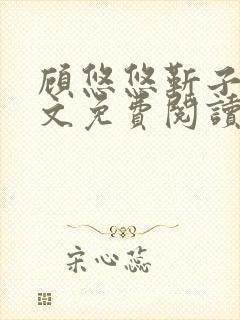 顾悠悠靳子
文免费阅读
宋心蕊